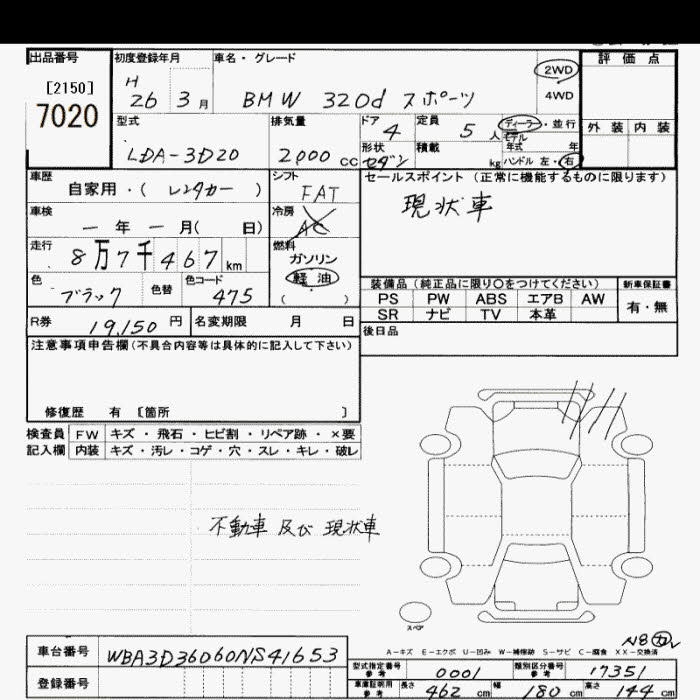 出品番号
[2150]
7020
初度登録年月
H
26 3月
車名・グレード
BMW 320d スポーツ
2WD
4WD
評価点
外装 内装
型式
LDA-3D20
排気量
2000 CC
ドア 4
形状 セダン
定員 5 人
積載 kg
ディーラー・並行
モデル
年式 年
ハンドル 左・右
車歴
自家用・( レンタカー )
シフト
FAT
セールスポイント (正常に機能するものに限ります)
現状車
車検
― 年 ― 月( 日)
冷房
AC
走行
8万7千467km
燃料
ガソリン
軽油
( )
色
ブラック
色替
色コード
475
装備品 (純正品に限り○をつけてください)
PS PW ABS エアB AW
SR ナビ TV 本革
新車保証書
有・無
R券 19,150 円
名変期限 月 日
後日品
注意事項申告欄(不具合内容等は具体的に記入して下さい)
修復歴 有 [箇所 ]
検査員 FW キズ・飛石・ヒビ割・リペア跡・×要
記入欄 内装 キズ・汚レ・コゲ・穴・スレ・キレ・破レ
不動車 及び 現状車
スペア
A-キズ E-エクボ U-凹み W-補修跡 S-サビ C-腐食 XX-交換済
車台番号 WBA3D36060NS41653
登録番号
型式指定番号 参考 0001
類別区分番号 参考 17351
車庫証明用 参考 長さ 462 cm 幅 180 cm 高さ 144 cm